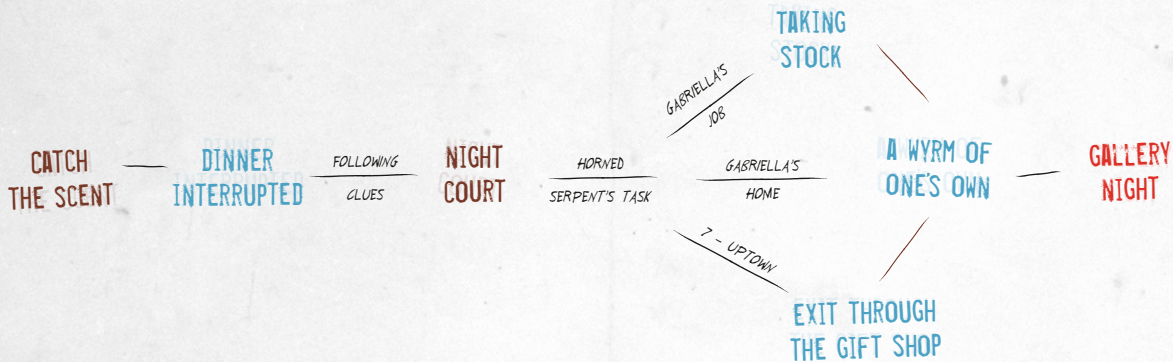 CATCH
THE SCENT
DINNER
INTERRUPTED
FOLLOWING
CLUES
NIGHT
COURT
HORNED
SERPENT'S TASK
GABRIELLA'S
JOB
TAKING
STOCK
GABRIELLA'S
HOME
A WYRM OF
ONE'S OWN
7 - UPTOWN
EXIT THROUGH
THE GIFT SHOP
GALLERY
NIGHT